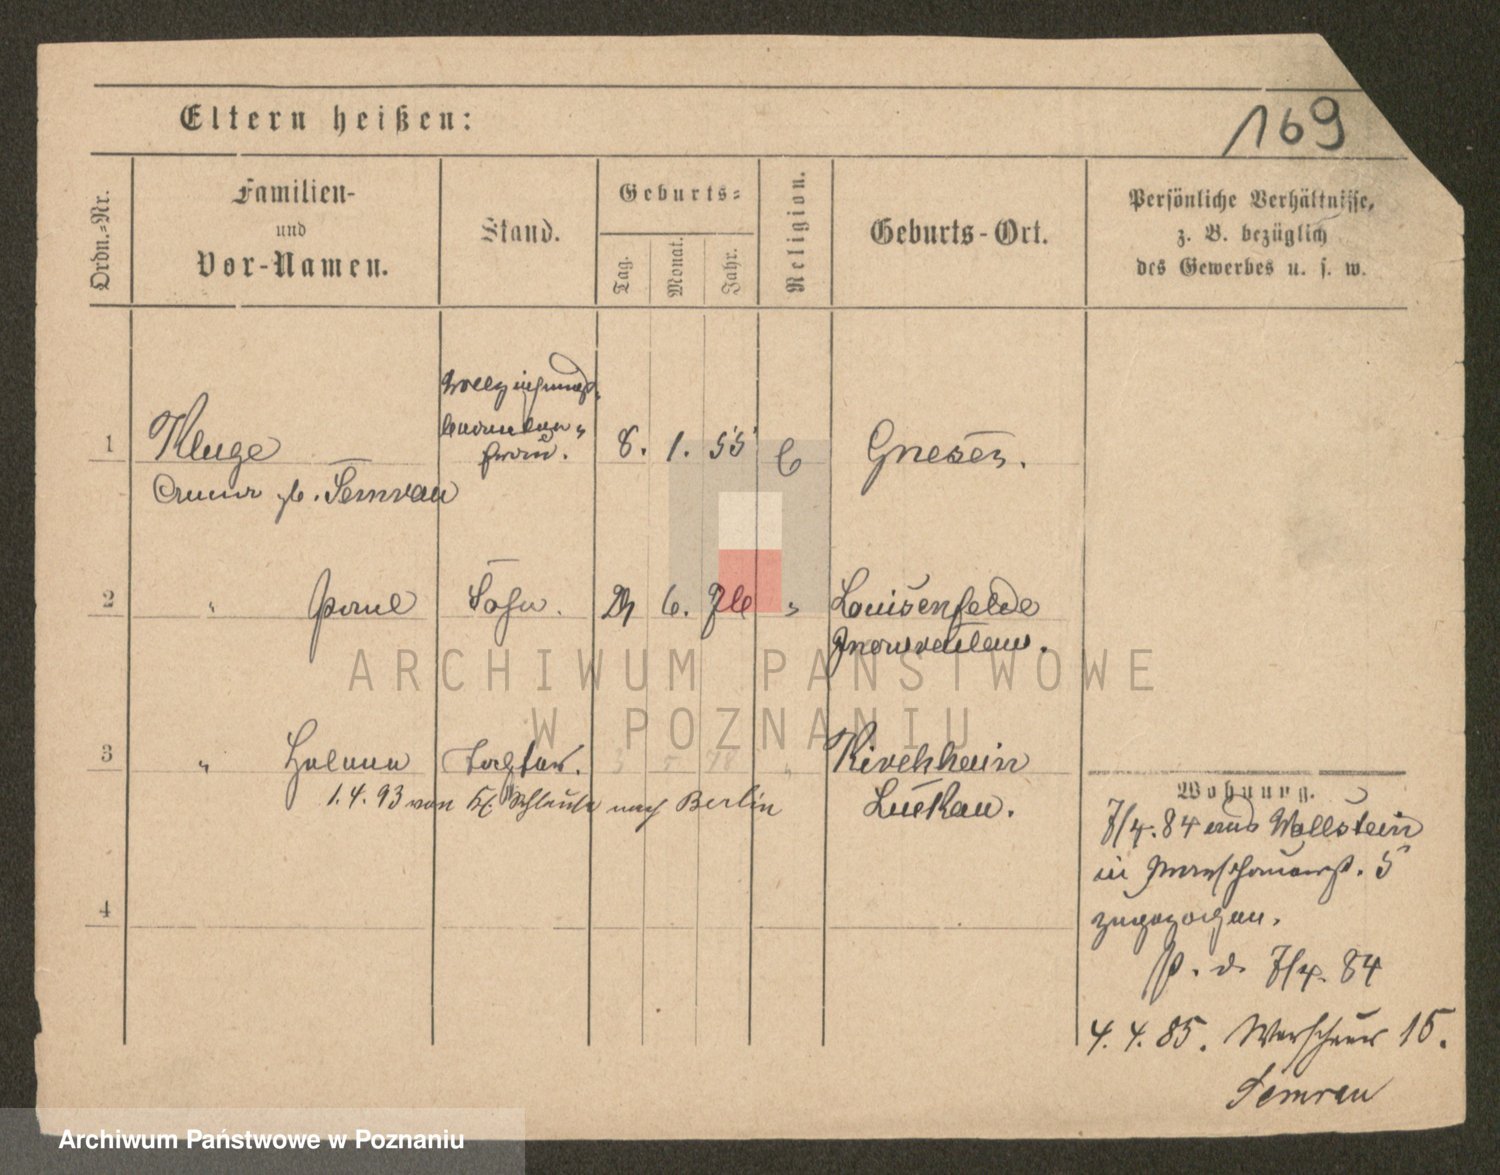 169
Eltern heißen:
Ordn.-Nr.
Familien-
und
Vor-Namen.
Stand.
Geburts-
Tag.
Monat.
Jahr.
Religion.
Geburts-Ort.
Persönliche Verhältnisse,
z. B. bezüglich
des Gewerbes u. s. w.
1
Kluge
geb. Semrau
Vollziehungs-
beamten-
frau.
8. 1. 55
Gnesen.
2
" Paul
Sohn.
6. 76
"
Louisenfelde
Inowrazlaw.
3
" Helene
Tochter.
Kirchhain
Luckau.
1.4.93 von nach Berlin
4
Wohnung.
7/4.84 aus Wollstein
in Warschauerst. 5
zugezogen.
p. d. 7/4. 84
4. 4. 85. Warschauer 15.
Semrau
ARCHIWUM PAŃSTWOWE
W POZNANIU
Archiwum Państwowe w Poznaniu